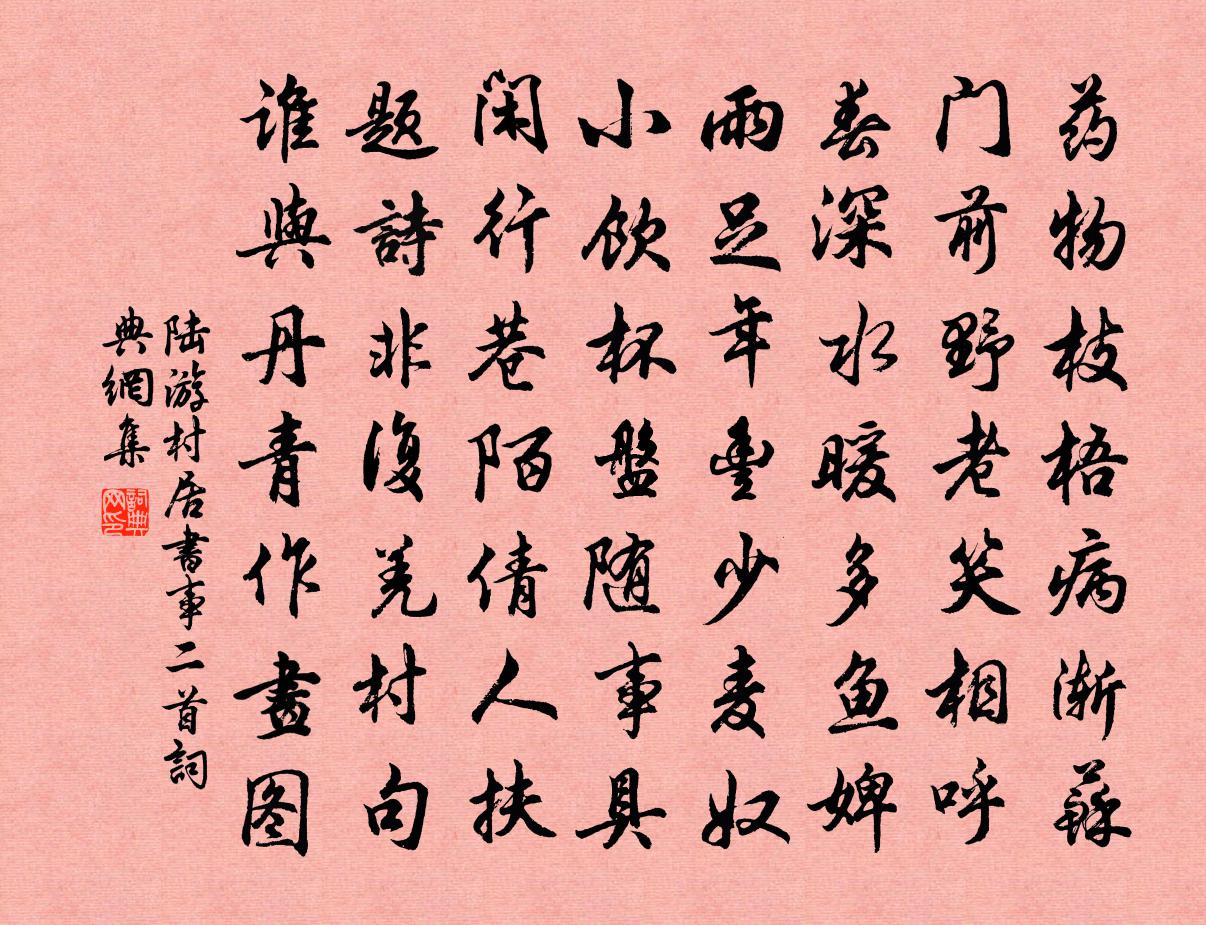 药物枝梧病渐蘇
门前野老笑相呼
春深水暖多鱼婢
雨足年豊少麦奴
小飲杯盤随事具
闲行巷陌倩人扶
题詩非復羌村句
谁與丹青作畫图
陆游村居書事二首詞
典網集
詞典
网印